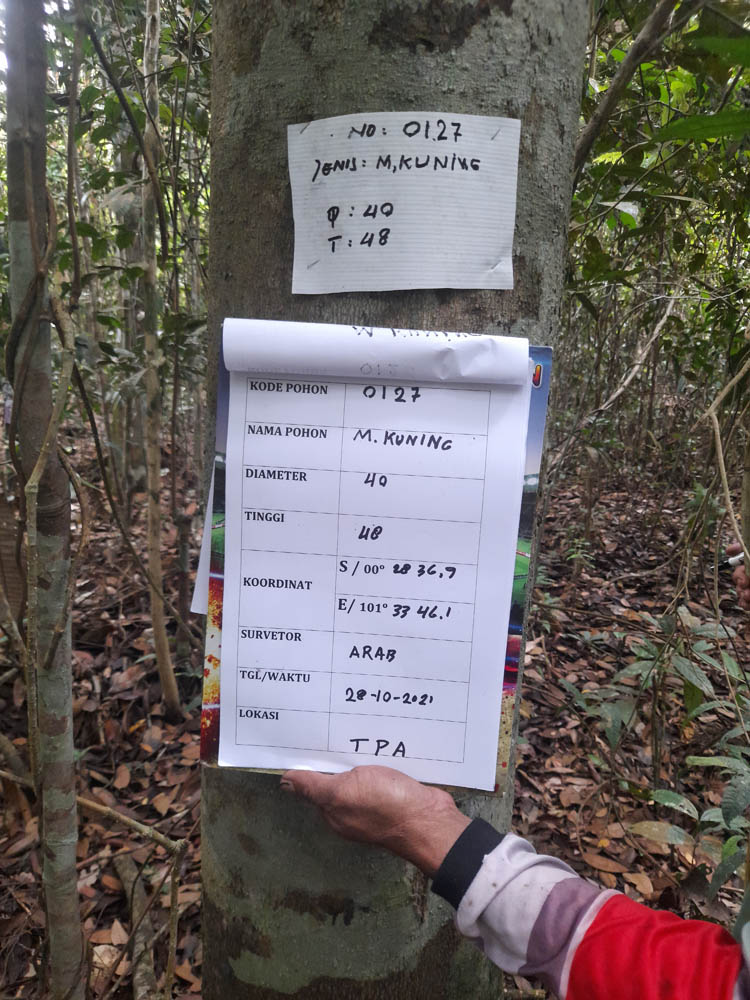 NO: 0127
JENIS: M, KUNING
Φ : 40
T : 48
KODE POHON 0127
NAMA POHON M. KUNING
DIAMETER 40
TINGGI 48
KOORDINAT S / 00° 28 36,7
E/ 101° 33 46.1
SURVETOR ARAB
TGL/WAKTU 28-10-2021
LOKASI TPA